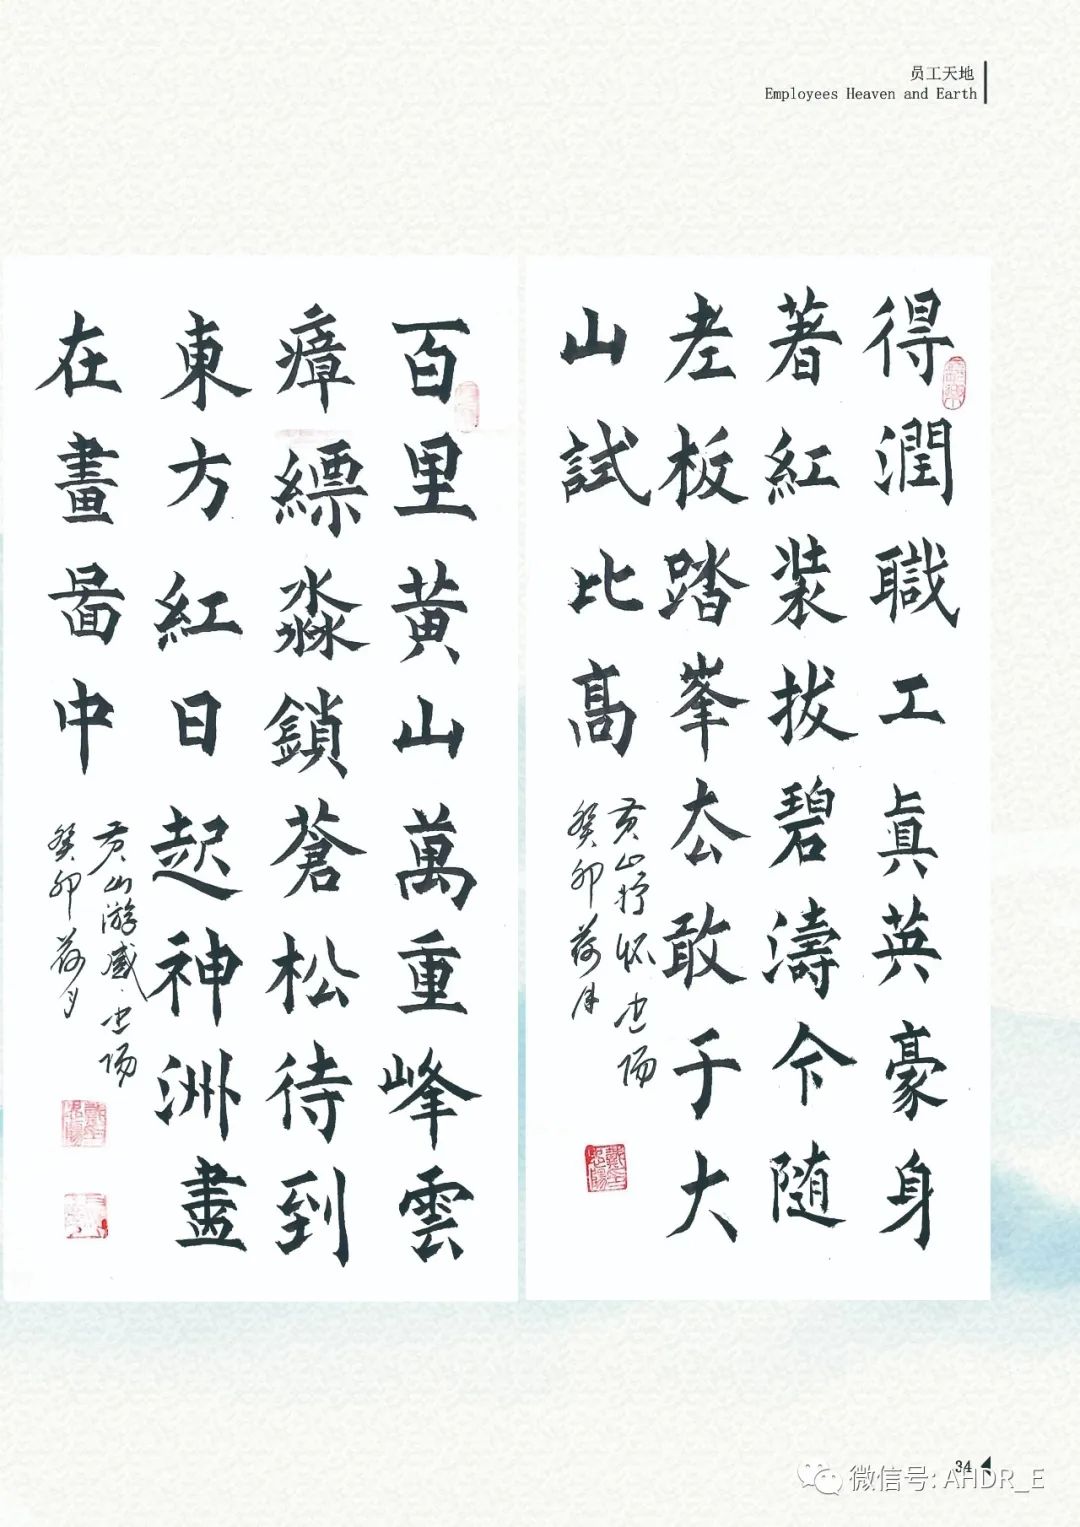 员工天地
Employees Heaven and Earth
得潤職工眞英豪身
著紅装拔碧濤令随
老板踏峯厺敢于大
山試比髙
黄山抒怀 忠阳
癸卯荷月
百里黄山萬重峰雲
瘴縹淼鎖蒼松待到
東方紅日起神洲盡
在畫啚中
黄山游感 忠阳
癸卯荷月
34
微信号: AHDR_E